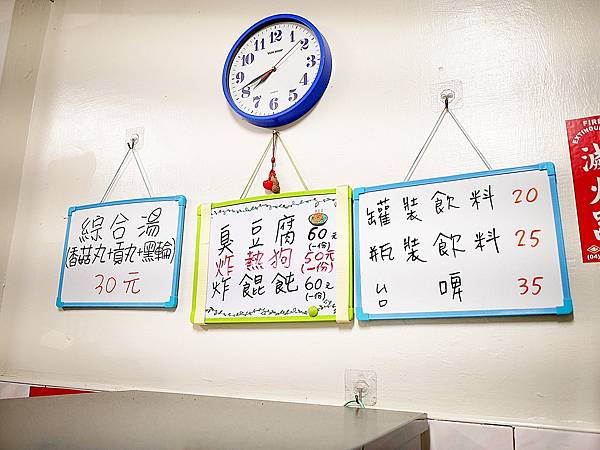 12
1
2
3
4
5
6
7
8
9
10
11
綜合湯
(香菇丸+貢丸+黑輪)
30元
臭豆腐 60元
(一份)
炸熱狗 50元
(一份)
炸餛飩 60元
(一份)
罐裝飲料 20
瓶裝飲料 25
台啤 35
FIRE
EXTINGUI
滅火器
(04)